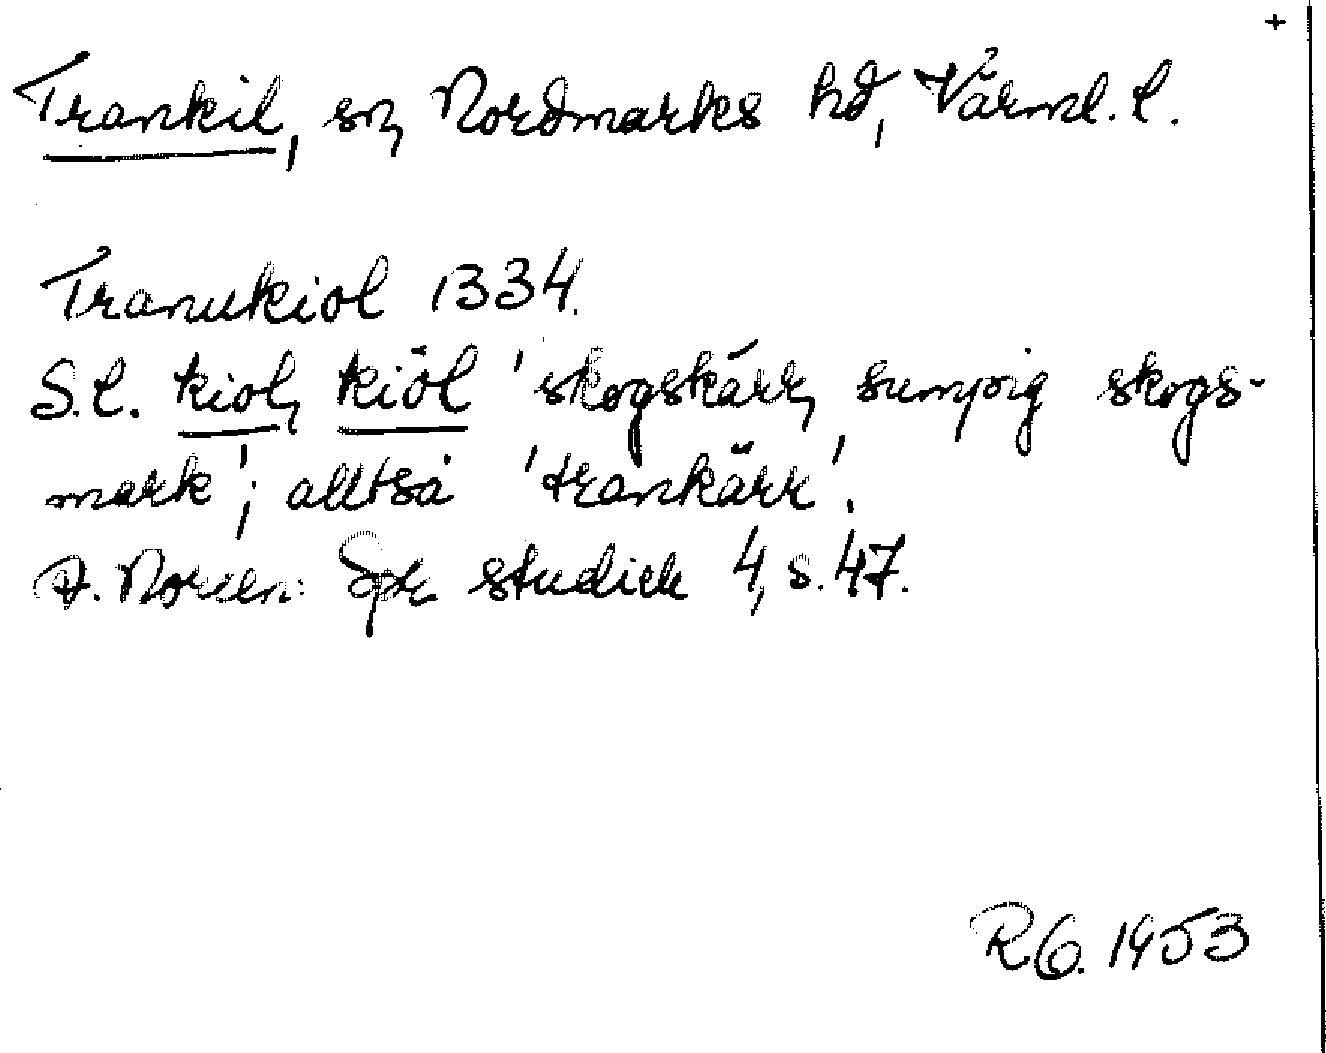 +
Trankil, sn, Nordmarks hd, Värml. l.
Tranukiol 1334.
S.l. kiol, kiöl 'skogskärr, sumpig skogs-
mark'; alltså 'trankärr'.
A. Noreen: Spr studier 4, s. 47.
RG. 1953